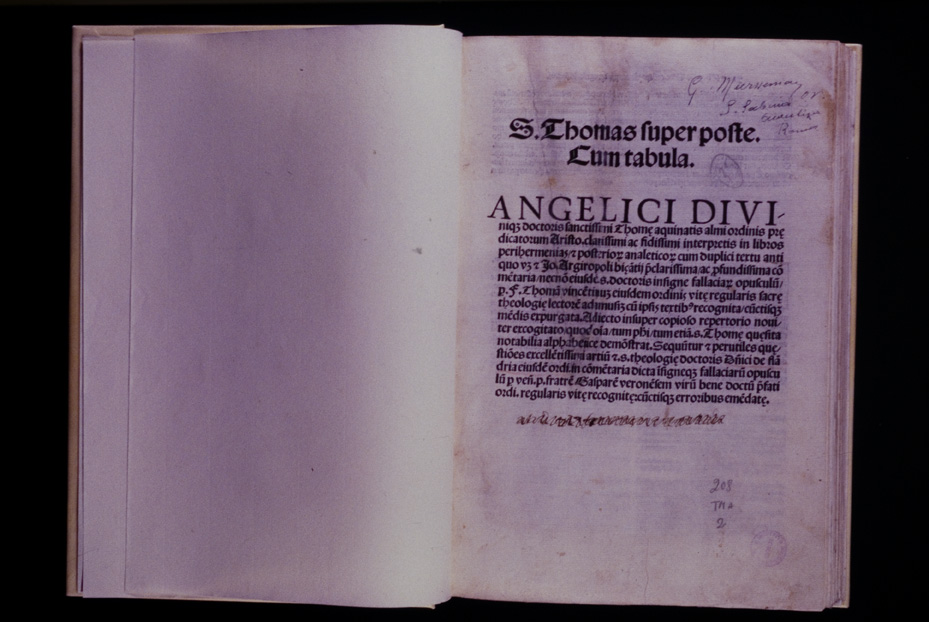 S. Thomas super poste.
Cum tabula.
ANGELICI DIVI-
niqꝫ doctoris sanctissimi Thomę aquinatis almi ordinis prę
dicatorum Aristo.clarissimi ac fidissimi interpretis in libros
perihermenias ⁊ posterioꝝ analeticoꝝ cum duplici textu anti
quo vꝫ ⁊ Jo.Argiropoli biçãtij p̃clarissima/ac ꝓfundissima cõ
mẽtaria/necnõ eiusdẽ.s.doctoris insigne fallaciaꝝ opusculũ/
p.F.Thomã vincẽtinuꝫ eiusdem ordinis vitę regularis sacrę
theologię lectorẽ adimussiꝫ cũ ipsis textibꝰ recognita/cũctisqꝫ
mẽdis expurgata.Adiecto insuper copioso repertorio noui/
ter excogitato quod oĩa/tum phi/tum etiã.s.Thomę quęsita
notabilia alphabetice demõstrat.Sequũtur ⁊ perutiles quę/
stiões excellẽtissimi artiũ ⁊.s.theologię doctoris Dñici de flã
dria eiusdẽ ordi.in cõmẽtaria dicta ĩsigneqꝫ fallaciarũ opuscu
lũ p veñ.p.fratrẽ Gasparẽ veronẽsem virũ bene doctũ p̃fati
ordi. regularis vitę recognitę:cũctisqꝫ erroribus emẽdatę.
208
2